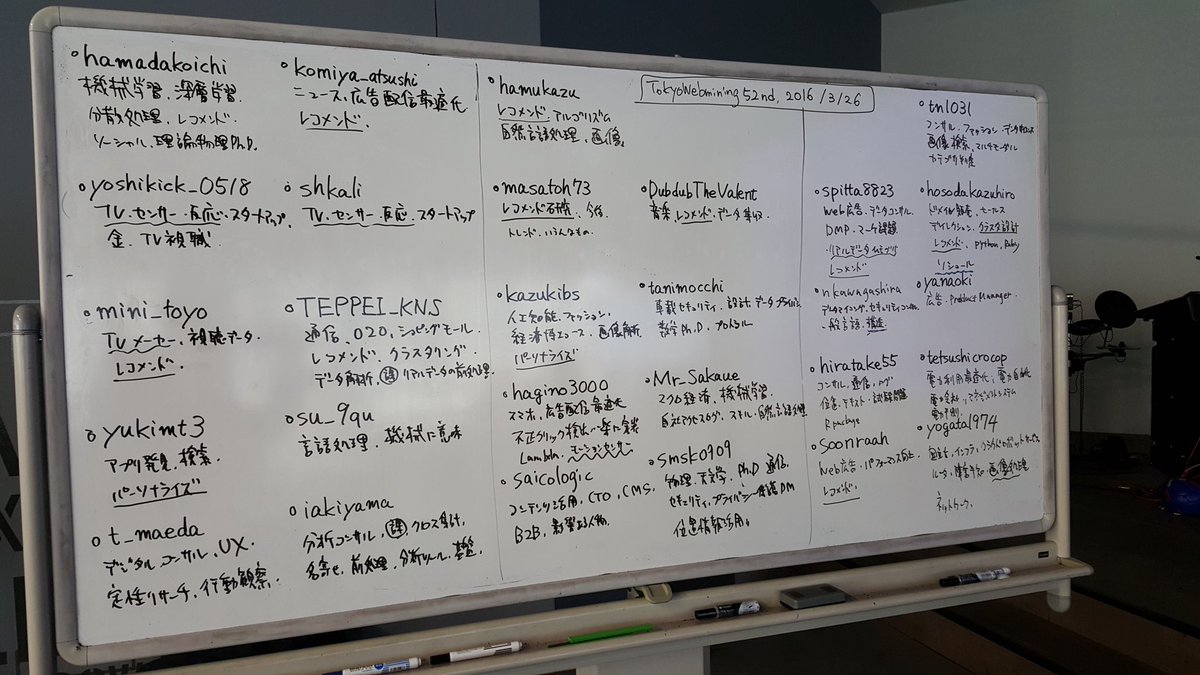 TokyoWebmining 52nd, 2016/3/26
hamadakoichi
機械学習、深層学習
分散処理、レコメンド
ソーシャル、理論物理Ph.D.
komiya_atsushi
ニュース、広告配信最適化
レコメンド
yoshikick_0518
TV、センサー・反応・スタートアップ
金、TV視聴
shkali
TV、センサー・反応、スタートアップ
mini_toyo
TVメーカー、視聴データ
レコメンド
TEPPEI_KNS
通信、O2O、ショッピングモール
レコメンド、クラスタリング
データ解析、リアルデータの前処理
yukimt3
アプリ発見、検索
パーソナライズ
su_9qu
言語処理、機械に意味
t_maeda
デジタルコンサル、UX
定性リサーチ、行動観察
iakiyama
分析コンサル、クロス集計、
名寄せ、前処理、分析ツール、基盤
hamukazu
レコメンド、アルゴリズム
自然言語処理、画像
masatoh73
レコメンド
トレンド、いろんなもの
DubdubTheValent
音楽、レコメンド、データ
kazukibs
人工知能、ファッション
経済博、画像解析
パーソナライズ
tanimocchi
車載セキュリティ、設計、データ
数学Ph.D、
hagino3000
スマホ、広告配信最適化
不正クリック検出
Lambda、
Mr_Sakaue
マクロ経済、機械学習
自社アクセスログ、スキル、自然言語処理
saicologic
コンテンツ活用、CTO、CMS、
B2B、影響ある人物
smsk0909
物理、天文学、Ph.D 通信、
セキュリティ、プライバシー保護DM
位置情報活用
tn1031
コンサル、ファッション、データ
画像検索、マルチモーダル
カテゴリ
spitta8823
Web広告、データコンサル
DMP、マーケ課題
リアルデータ
レコメンド
hosodakazuhiro
セールス
ディレクション、クラスタ設計
レコメンド、Python, Ruby
ソシュール
nkawagashira
データマイニング、セキュリティ
構造
yanaoki
広告、Product Manager
hiratake55
コンサル、通信、ログ
位置、テキスト、
R package
tetsushicrocop
電力利用最適化、電力自由化
電力会社、マネジメントシステム
soonraah
Web広告、パフォーマンス
レコメンド
yogata1974
インフラ、
画像処理
ネットワーク